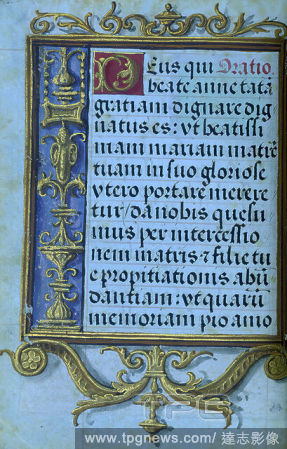 Deus qui Oratio
beate anne tātā
gratiam dignare dig
natus es: vt beatissi
mam mariam matrē
tuam in suo gloriose
vtero portare merere
tur/da nobis quesu
mus per intercessio
nem matris & filie tu
e propitiationis abū
dantiam: vt quarū
memoriam pio amo
TPG
www.tpgnews.com/ 達志影像